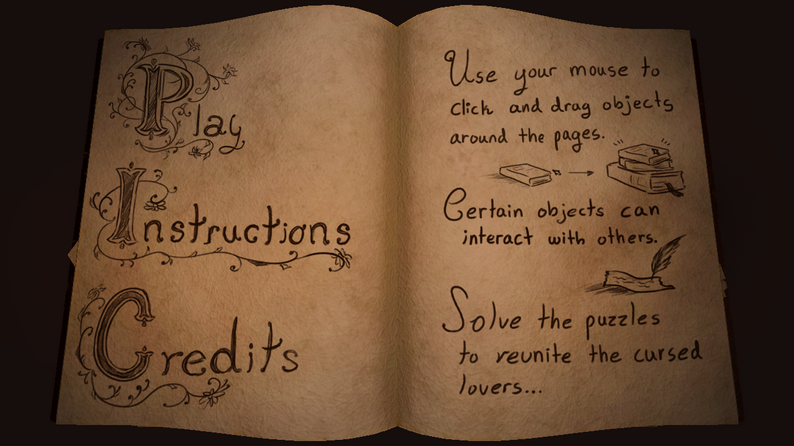 Play
Instructions
Credits
Use your mouse to
click and drag objects
around the pages.
Certain objects can
interact with others.
Solve the puzzles
to reunite the cursed
lovers...